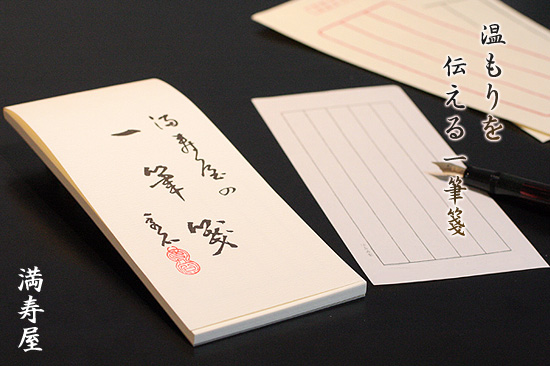 温もりを
伝える一筆箋
満寿屋の
一筆箋
満寿屋